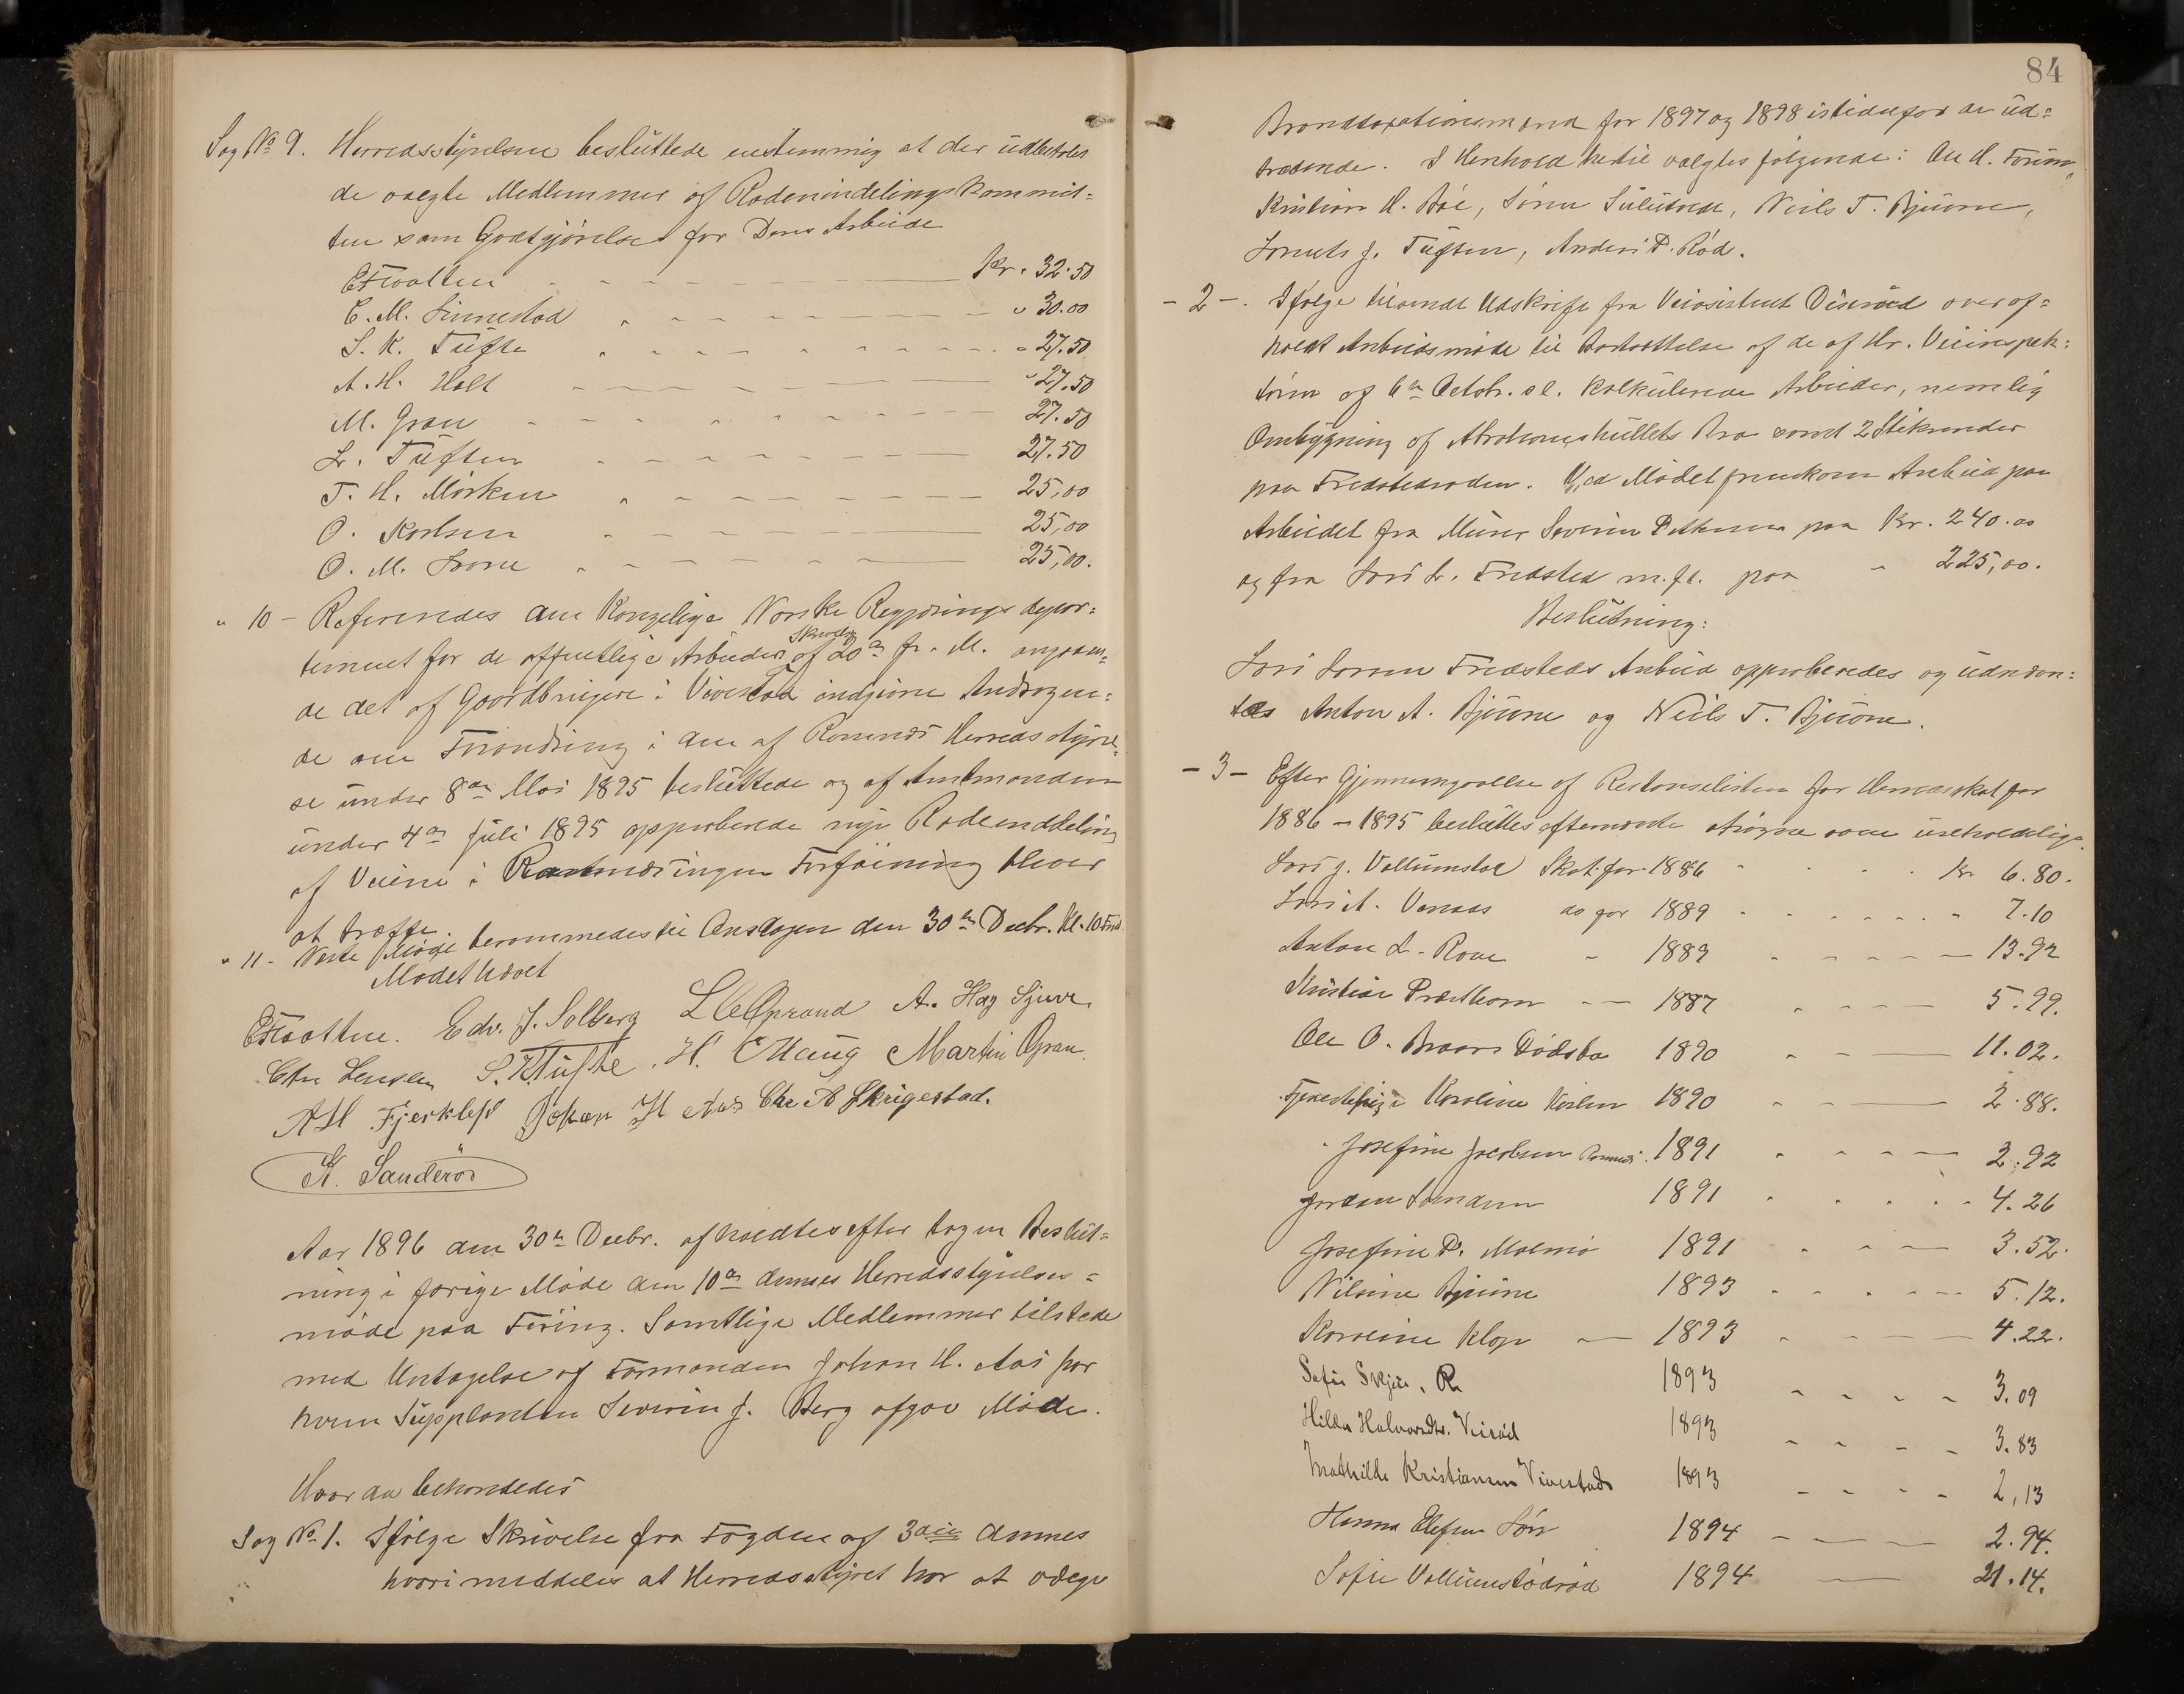 Sag No 9. Herredsstyrelsen besluttede enstemmig at der udbetales
de valgte Medlemmer af Rodeinddelings Kommit=
ten som Godtgjørelse for Deres Arbeide
E Hvatten Kr. 32.50
C. M. Sinnestad " 30.00
S. K. Tufte " 27.50
A. H. Holt " 27.50
M. Gran 27.50
L. Tuften 27.50
T. H. Mørken 25,00
O. Karlsen 25,00
O. M. 25,00.
" 10 - Refereredes den Kongelige Norske Regjerings depar=
tement for de offentlige Arbeider Skrivelse af 20de f. M. angaaen=
de det af Gaardbrugere i Vivestad indgivne Andragen=
de om Forandring i den af Ramnæs Herredsstyrel=
se under 8de Mai 1895 besluttede og af Amtmanden
under 4de Juli 1895 approberede nye Rodeinddeling
af Veiene i Ramnæs ingen Forføining bliver
at træffe.
" 11 - Næste Møde berammedes til Onsdagen den 30te Decbr. Kl. 10 Fmd.
Mødet hævet
E Hvatten. Edv. J. Solberg A. Hag Sjuve
Chr Jensen S. K. Tufte. H. Haug Martin Gran.
A H Fjerklep Johan H Aas Chr A Skrigestad.
K. Sanderød
Aar 1896 den 30te Decbr. afholdtes efter tagen Beslut=
ning i forige Møde den 10de dennes Herredsstyrelses=
møde paa Føring. Samtlige Medlemmer tilstede
med Untagelse af Formanden Johan H. Aas for
hvem Supplanten Severin J. Berg afgav Møde.
Hvor da behandledes
Sag No. 1. Ifølge Skrivelse fra Fogden af 3die dennes
hvori meddeles at Herredsstyret har at vælge
84
Brandtaxationsmænd for 1897 og 1898 istedenfor de ud=
trædende. I Henhold hertil valgtes følgende: Ole H. Forum,
Kristian H. Bøe, Søren Sulutvedt, Niels T. Bjuone,
J. Tuften, Anders P. Rød.
- 2 -. Ifølge tilsendt Udskrift fra Veiasistent over af=
holdt Anbudsmøde til Bortsættelse af de af Hr. Veiinspek=
tøren af 6te Octobr. sl. kalkulerede Arbeider, nemlig
Ombygning af Abrahamshullets Bro samt 2 Stikrender
paa Fredstedroden. Ved Mødet fremkom Anbud paa
Arbeidet fra Murer Severin Pettersen paa Kr. 240.00
og fra Lars L. Fredsted m.fl. paa " 225,00.
Beslutning:
Lars Larsen Fredsteds Anbud approberedes og udnævn=
tes Anton A. Bjuone og Niels T. Bjuone.
- 3 - Efter Gjennemgaaelse af Restanselisten for Herredsskat for
1886 - 1895 besluttes eftern strøgne som uerholdelige.
Lars J. Vollumstad Skat for 1886 Kr 6.80.
Lars A. do for 1889 " 7.10
Anton L. 1889 13.92
Kristian Præsthorn 1887 5.99.
Ole O. Braars Dødsbo 1890 11.02.
Tjenestepige Karoline 1890 2.88.
" Josefine Jacobsen Ramnæs. 1891 2.92
1891 4.26
Josefine P. Malmø 1891 3.52.
Nilsine Bjuine 1893 5.12.
Karoline Klop 1893 4.22.
Sofie Skjæ. R. 1893 3.09
Hilda Halvorsdtr. Veirød 1893 3.83
Mathilde Kristiansen Vivestad 1893 2,13
Hanna Elefsen 1894 2.94.
Sofie Vollumstødrød 1894 21.14.